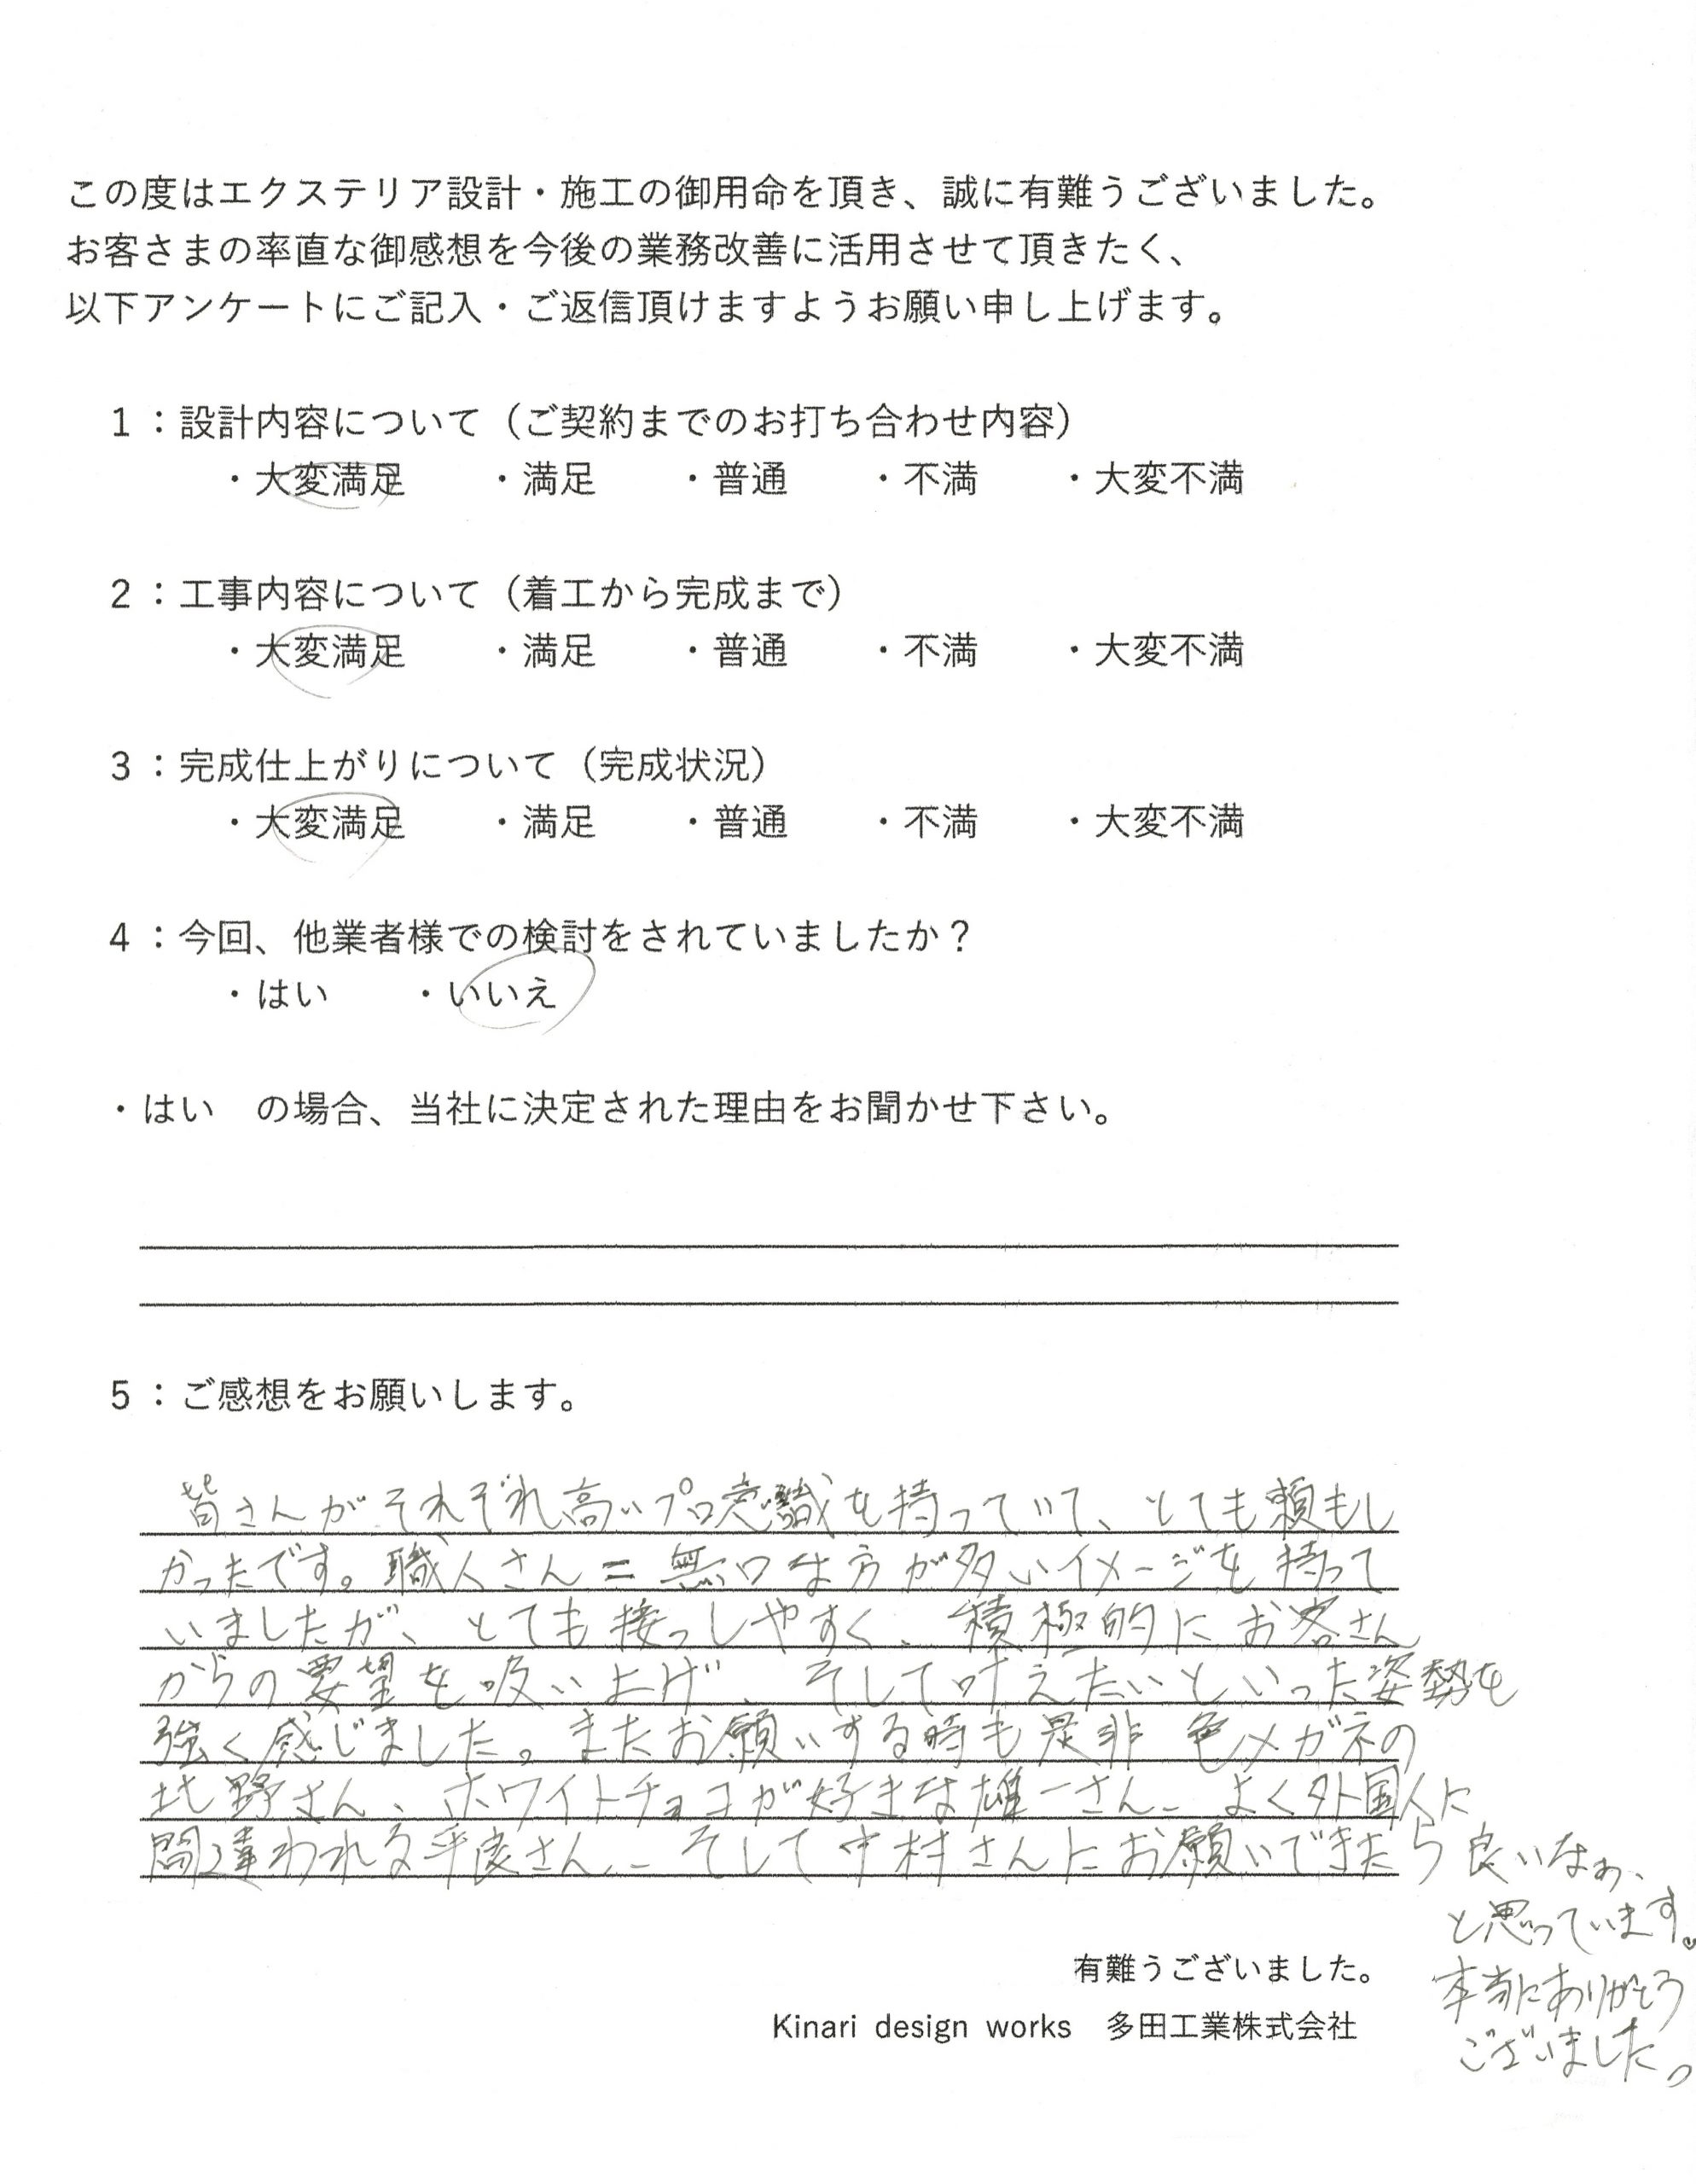 この度はエクステリア設計・施工の御用命を頂き、誠に有難うございました。
お客さまの率直な御感想を今後の業務改善に活用させて頂きたく、
以下アンケートにご記入・ご返信頂けますようお願い申し上げます。
1：設計内容について（ご契約までのお打ち合わせ内容）
・大変満足 ・満足 ・普通 ・不満 ・大変不満
2：工事内容について（着工から完成まで）
・大変満足 ・満足 ・普通 ・不満 ・大変不満
3：完成仕上がりについて（完成状況）
・大変満足 ・満足 ・普通 ・不満 ・大変不満
4：今回、他業者様での検討をされていましたか？
・はい ・いいえ
・はい　の場合、当社に決定された理由をお聞かせ下さい。
5：ご感想をお願いします。
皆さんがそれぞれ高いプロ意識を持っていて、とても頼もし
かったです。職人さん＝無口な方が多いイメージを持って
いましたが、とても接っしやすく、積極的にお客さん
からの要望を吸い上げ、そして叶えたいといった姿勢を
強く感じました。またお願いする時も是非色メガネの
北野さん、ホワイトチョコが好きな雄一さん、よく外国人に
間違われるさん、そして中村さんにお願いできたら良いなぁ、
と思っています。
本当にありがとう
ございました。
有難うございました。
Kinari design works　多田工業株式会社